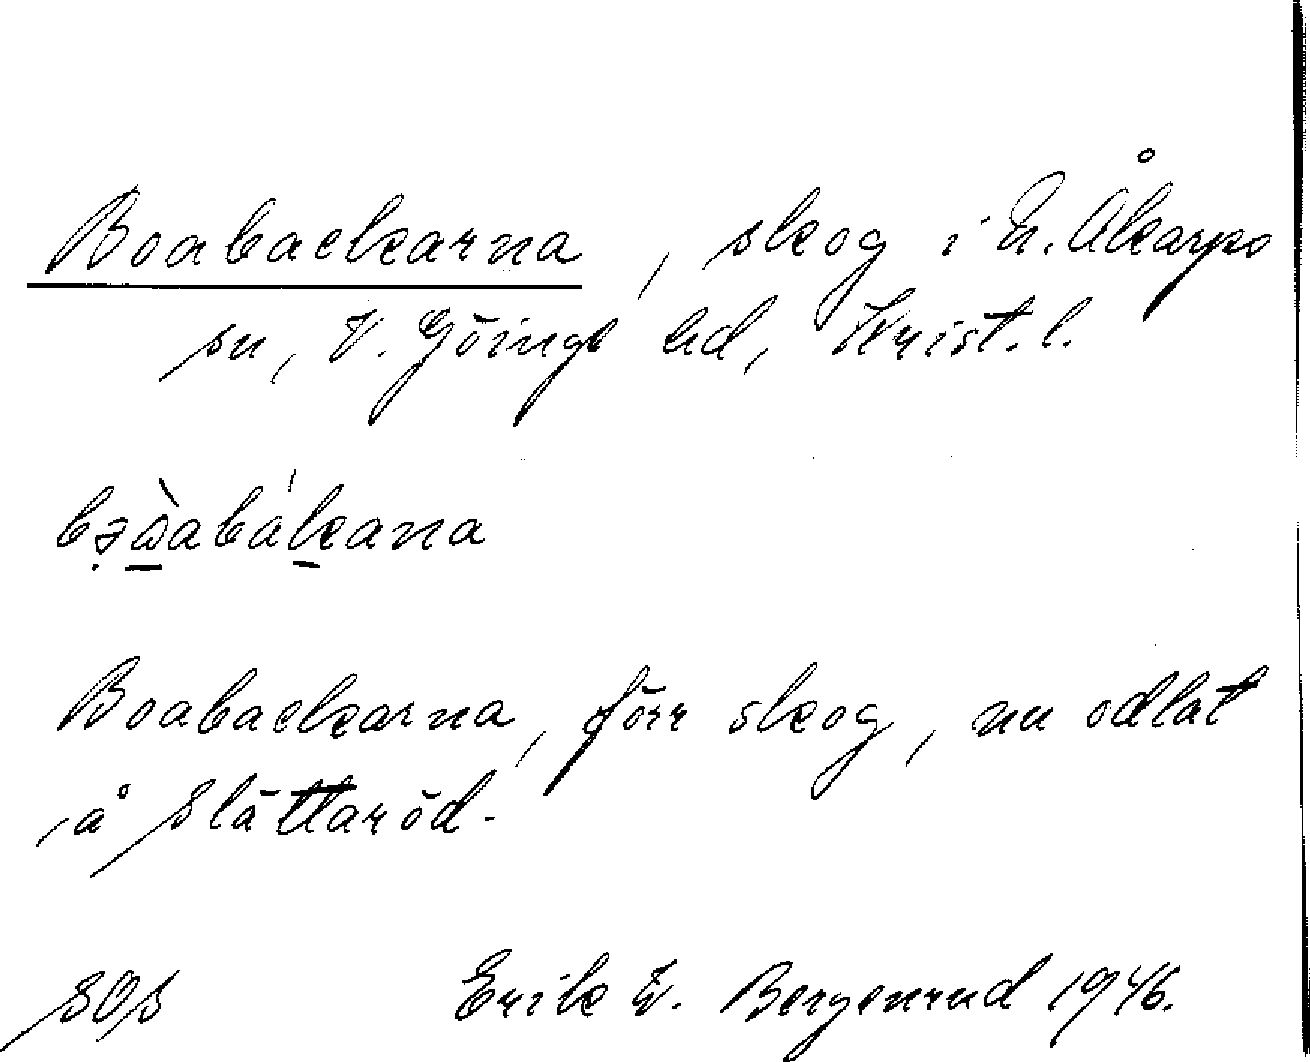 Boabackarna, skog i N. Åkarps
sn, V. Göinge hd, Krist. l.
Boabackarna, förr skog, nu odlat
å Slättaröd.
SOS Erik W. Bergenrud 1946.